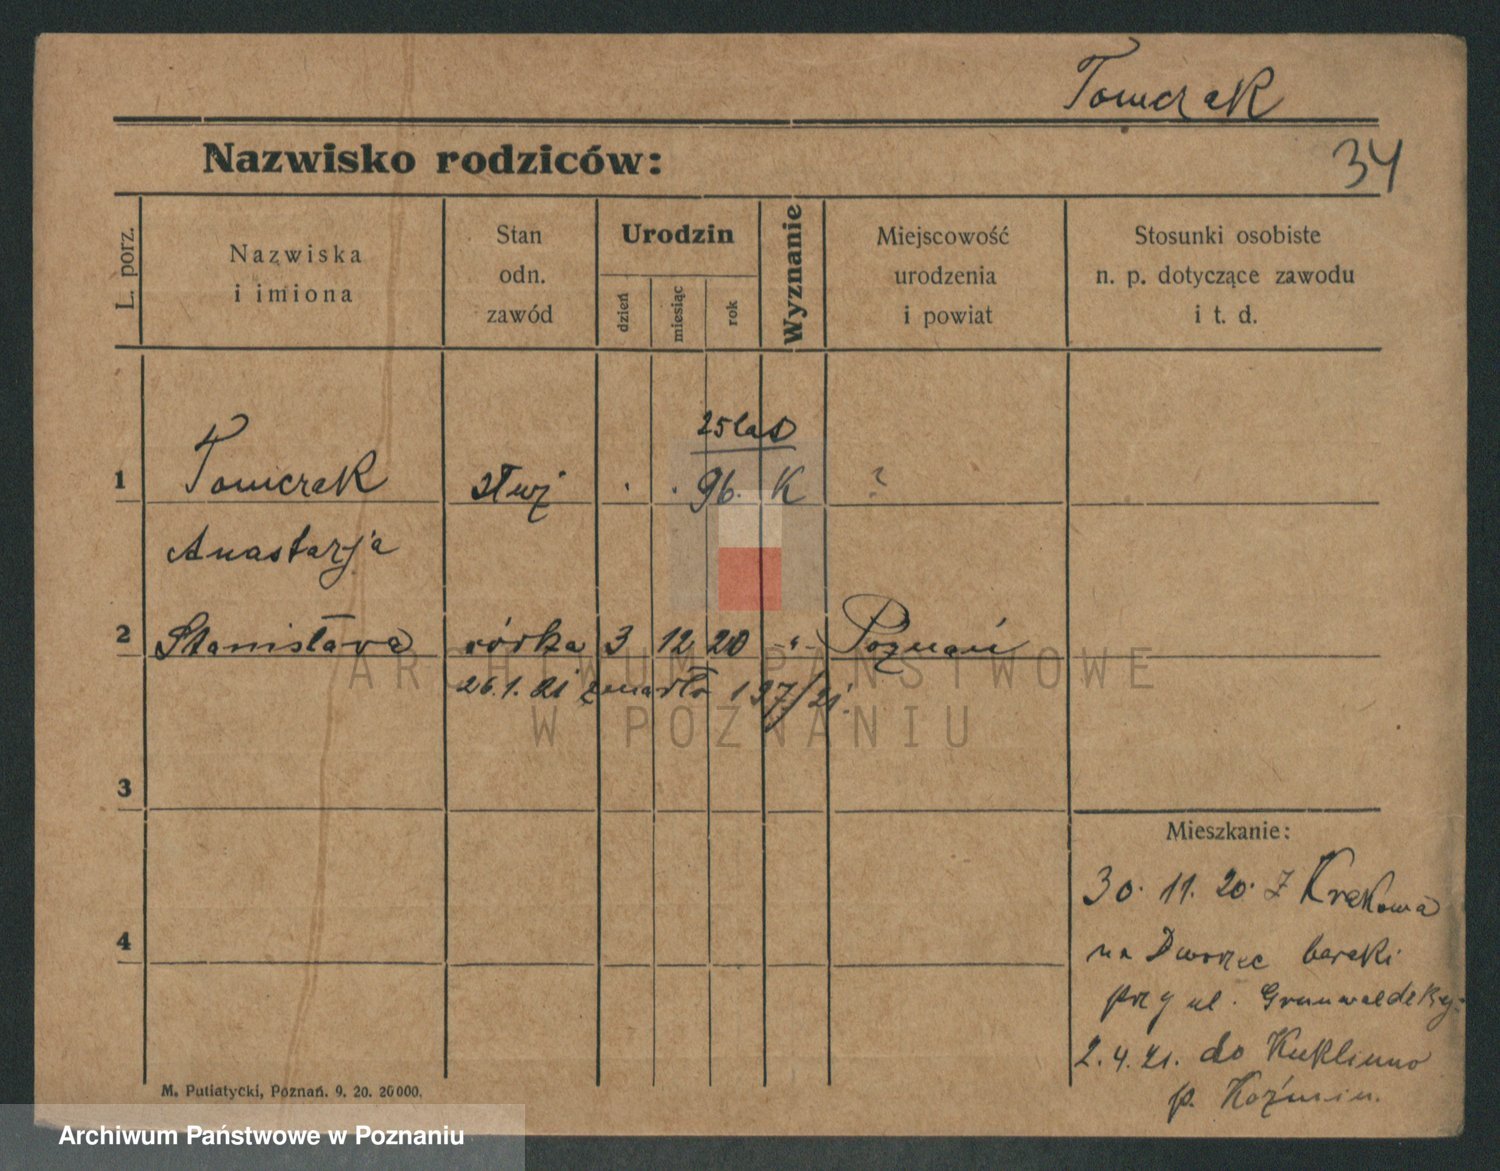 Tomczak
34
Nazwisko rodziców:
L. porz.
Nazwiska
i imiona
Stan
odn.
zawód
Urodzin
dzień
miesiąc
rok
Wyznanie
Miejscowość
urodzenia
i powiat
Stosunki osobiste
n. p. dotyczące zawodu
i t. d.
25 lat
1 Tomczak . . 96. K ?
Anastazja
2 Stanisława córka 3 12 20 -"- Poznań
26.1.21 zmarła 197/21.
3
4
Mieszkanie:
30. 11. 20. z Krakowa
na Dworzec baraki
przy ul. Grunwaldzkiej
2.4.21. do Kuklinno
p. Koźmin.
M. Putiatycki, Poznań. 9. 20. 20000.
ARCHIWUM PAŃSTWOWE
W POZNANIU
Archiwum Państwowe w Poznaniu